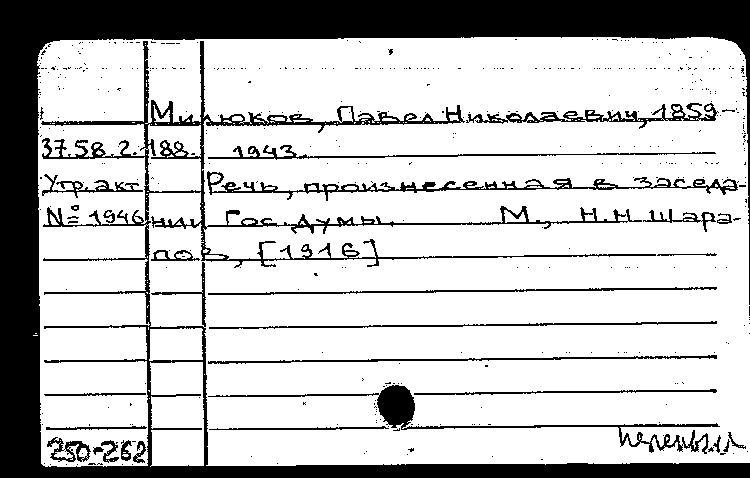 Милюков, Павел Николаевич, 1859-
37.58.2.188. 1943.
Утр. акт Речь, произнесенная в заседа-
№ 1946 нии Гос. думы. М., Н.Н Шара-
пов, [1916]
250-262